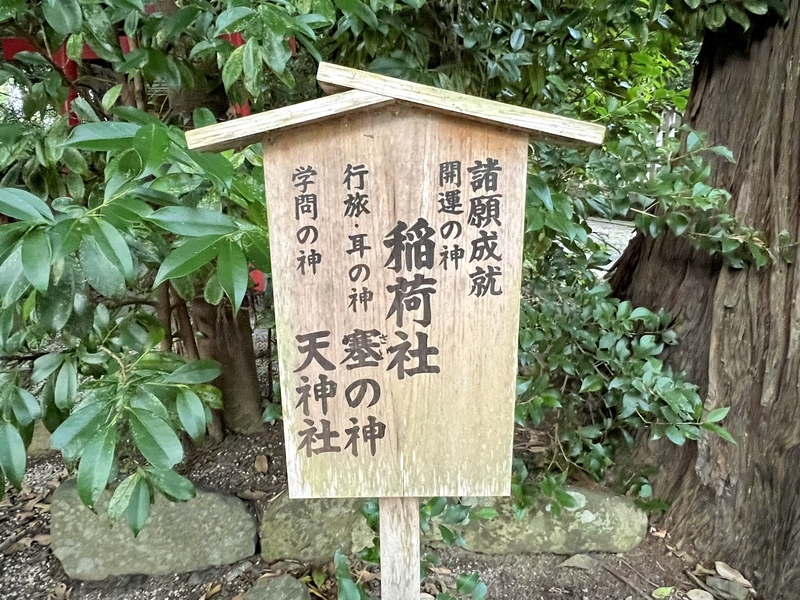 諸願成就
開運の神
稲荷社
行旅・耳の神
塞の神
さえ
学問の神
天神社